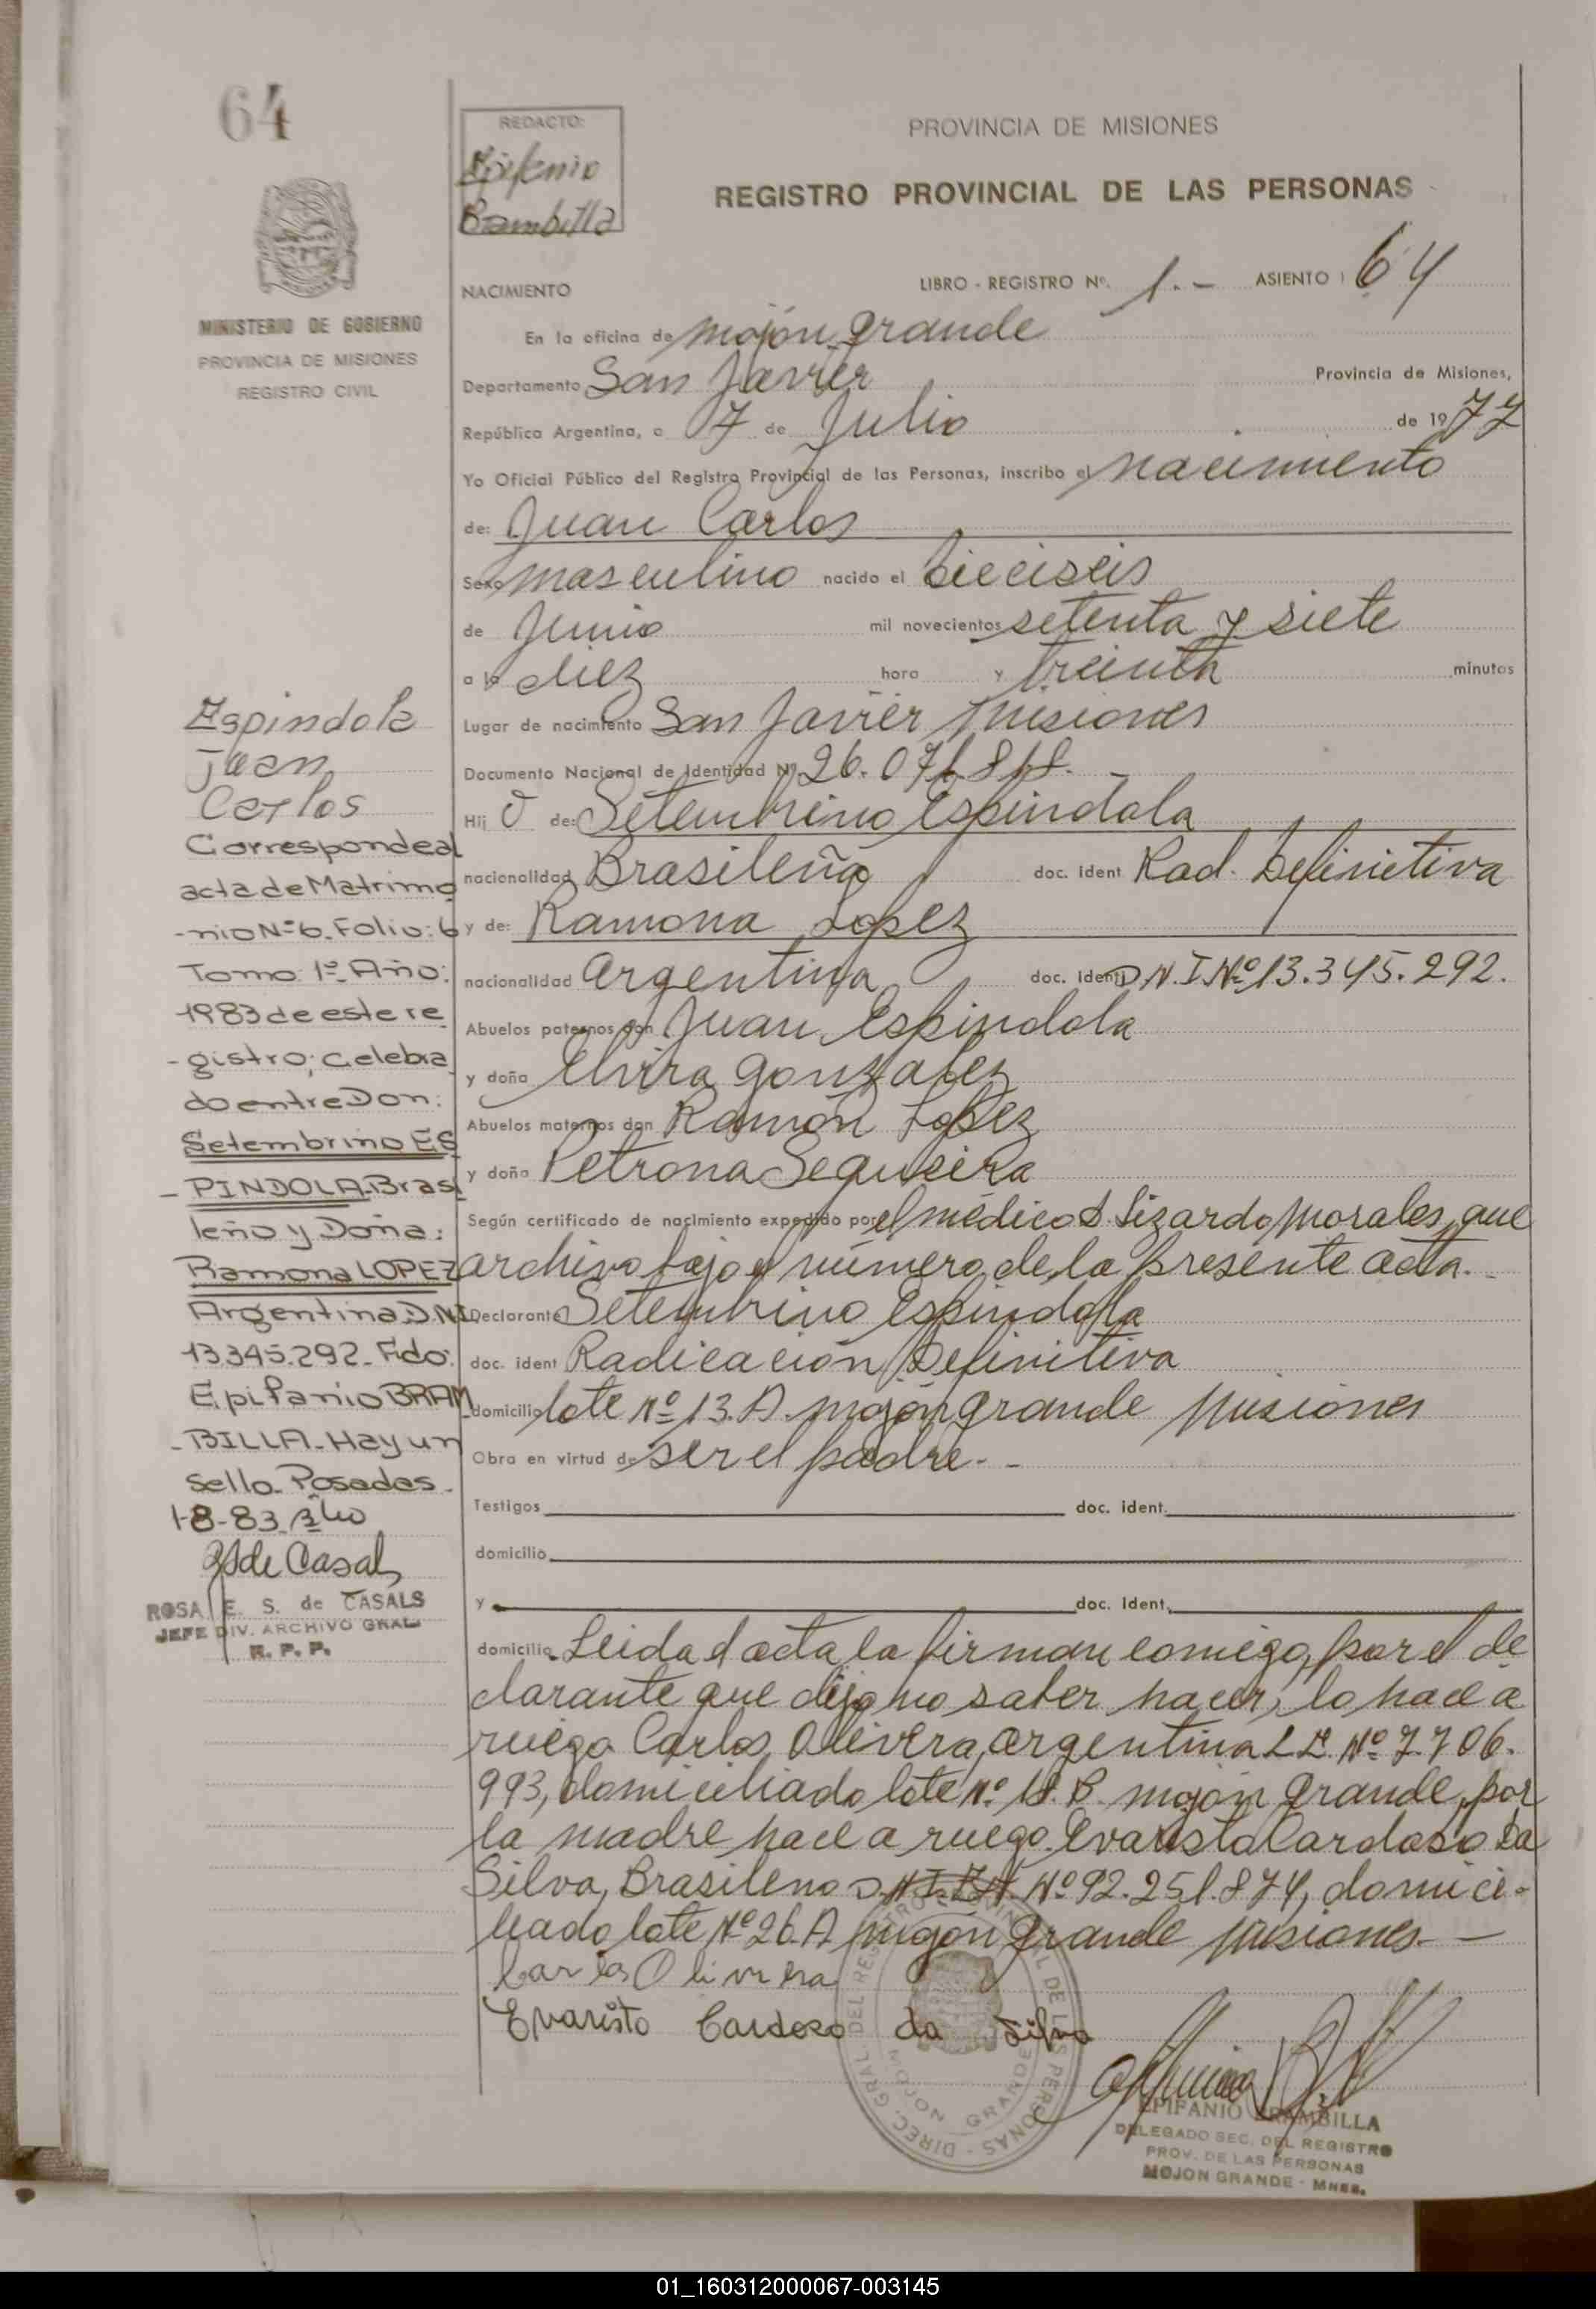 64
REDACTO:
Epifanio
Brambilla
PROVINCIA DE MISIONES
REGISTRO PROVINCIAL DE LAS PERSONAS
MINISTERIO DE GOBIERNO
PROVINCIA DE MISIONES
REGISTRO CIVIL
NACIMIENTO
LIBRO - REGISTRO Nº. 1.- ASIENTO 64
En la oficina de mojón grande
Departamento San Javier Provincia de Misiones,
República Argentina, a 7 de Julio de 1977
Yo Oficial Público del Registro Provincial de las Personas, inscribo el nacimiento
de: Juan Carlos
Sexo masculino nacido el Dieciseis
de Junio mil novecientos setenta y siete
a la diez hora y treinta minutos
Lugar de nacimiento San Javier Misiones
Documento Nacional de Identidad Nº 26.071.818.-
Hij o de: Setembrino Espindola
nacionalidad Brasileña doc. ident Rad. Definitiva
y de: Ramona Lopez
nacionalidad argentina doc. ident D.N.I.Nº 13.345.292.
Abuelos paternos don Juan Espindola
y doña Elvira gonzalez
Abuelos maternos don Ramón Lopez
y doña Petrona Sequeira
Según certificado de nacimiento expedido por el médico d. Lizardo Morales, que
archivo bajo el número de la presente acta.-
Declarante Setembrino Espindola
doc. ident Radicación Definitiva
domicilio lote Nº 13.A. mojón grande Misiones
Obra en virtud de ser el padre.-
Testigos doc. ident.
domicilio
y doc. ident.
domicilio. Leida el acta la firman comigo, por el de
clarante que dijo no saber hacer, lo hace a
ruego Carlos Olivera, argentina L.E. Nº 7.706.
993, domiciliado lote Nº 18.B. mojón grande, por
la madre hace a ruego Evaristo Cardoso Da
Silva, Brasileno D.N.I. Nº 92.251.874, domici-
liado lote Nº 26.A mojón grande Misiones.—
Carlos Olivera
Evaristo Cardozo da Silva
Espindola
Juan
Carlos
Corresponde al
acta de Matrimo
-nio Nº 6. Folio: 6
Tomo: 1º. Año:
1983 de este re
-gistro; Celebra
do entre Don:
Setembrino ES
-PINDOLA. Brasi
leño y Doña:
Ramona LOPEZ
Argentina D.N.I.
13.345.292. Fdo:
Epifanio BRAM
-BILLA. Hay un
sello. Posadas.
1-8-83.
de Casals
ROSA E. S. de CASALS
JEFE DIV. ARCHIVO GRAL
R. P. P.
DIREC. GRAL. DEL REGISTRO PROVINCIAL DE LAS PERSONAS
MOJON GRANDE
EPIFANIO BRAMBILLA
DELEGADO SEC. DEL REGISTRO
PROV. DE LAS PERSONAS
MOJON GRANDE - MNES.
01_160312000067-003145